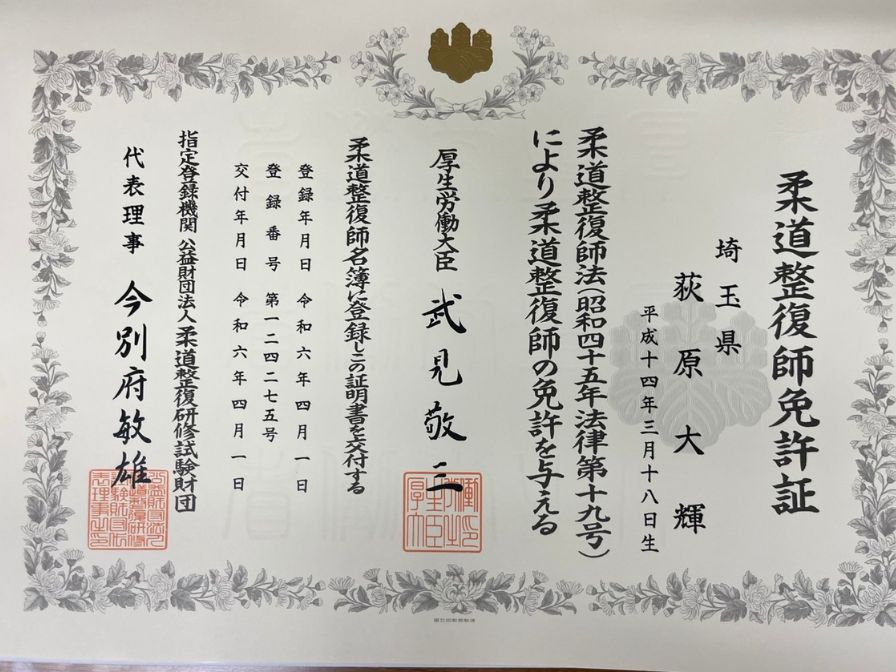 柔道整復師免許証
埼玉県
荻原大輝
平成十四年三月十八日生
柔道整復師法（昭和四十五年法律第十九号）
により柔道整復師の免許を与える
厚生労働大臣 武見敬三
柔道整復師名簿に登録しこの証明書を交付する
登録年月日 令和六年四月一日
登録番号 第一二四二七五号
交付年月日 令和六年四月一日
指定登録機関 公益財団法人柔道整復研修試験財団
代表理事 今別府敏雄